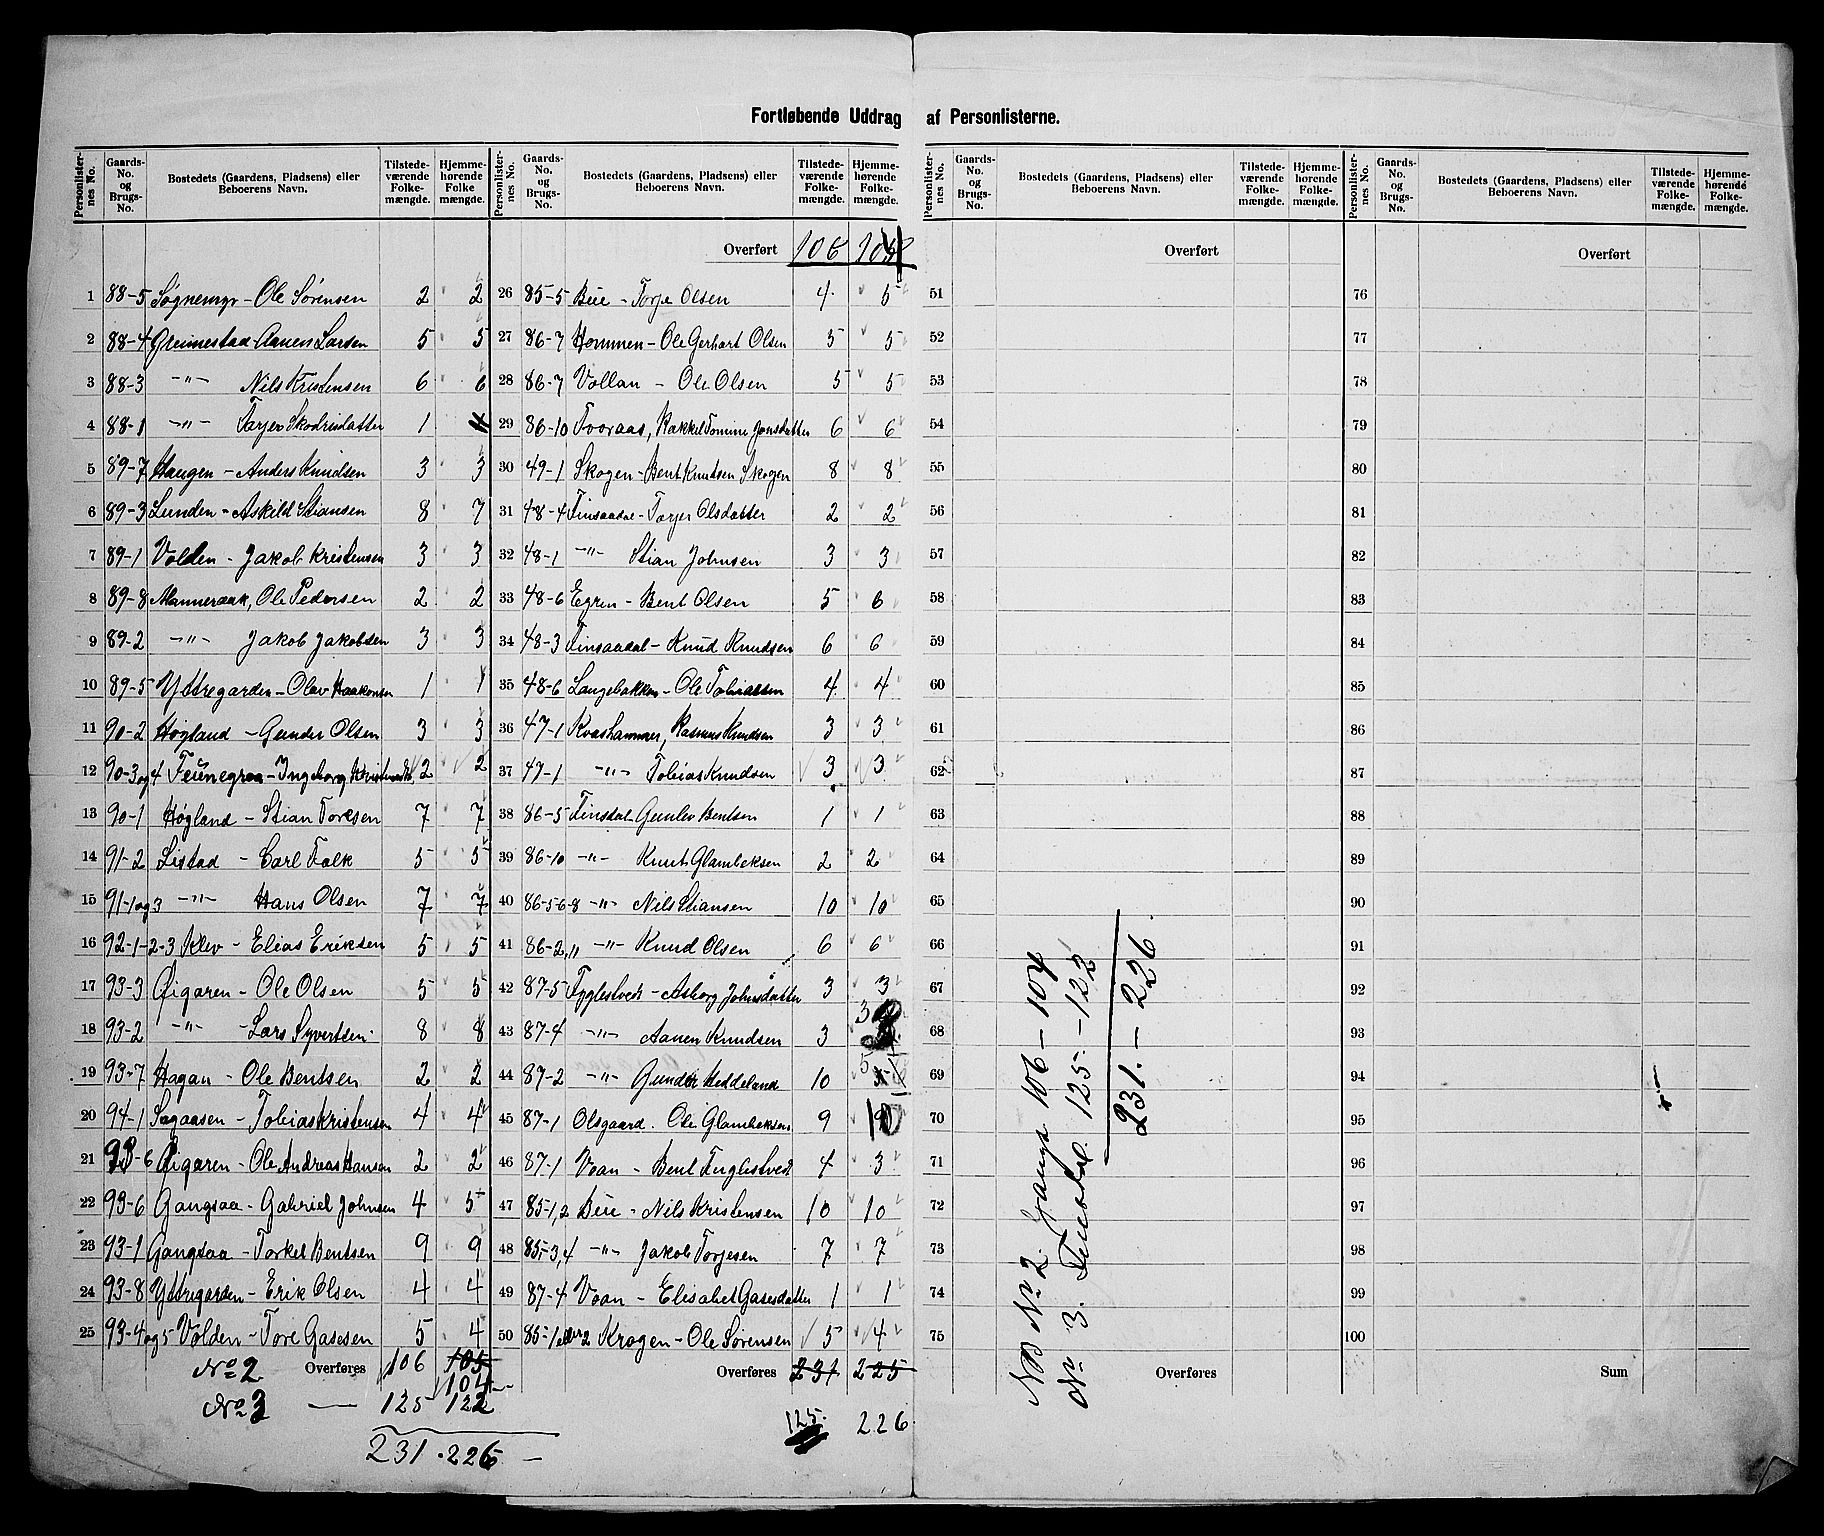 Fortløbende Uddrag af Personlisterne.
Personlisternes No. Gaards-No. og Brugs-No. Bostedets (Gaardens, Pladsens) eller Beboerens Navn. Tilstedeværende Folkemængde. Hjemmehørende Folkemængde.
Personlisternes No. Gaards-No. og Brugs-No. Bostedets (Gaardens, Pladsens) eller Beboerens Navn. Tilstedeværende Folkemængde. Hjemmehørende Folkemængde.
Personlisternes No. Gaards-No. og Brugs-No. Bostedets (Gaardens, Pladsens) eller Beboerens Navn. Tilstedeværende Folkemængde. Hjemmehørende Folkemængde.
Personlisternes No. Gaards-No. og Brugs-No. Bostedets (Gaardens, Pladsens) eller Beboerens Navn. Tilstedeværende Folkemængde. Hjemmehørende Folkemængde.
1 88-5 Søgnemyr - Ole Sörensen 2 2
2 88-4 Greimestad - Aanen Larsen 5 5
3 88-3 -"- Nils Kristensen 6 6
4 88-1 -"- Torjer 1
5 89-7 Haugen - Anders Knudsen 3 3
6 89-3 Lunden - Askild Stiansen 8 7
7 89-1 Volden - Jakob Kristensen 3 3
8 89-8 Manneraak, Ole Pedersen 2 2
9 89-2 -"- Jakob Jakobsen 3 3
10 89-5 Yttregarden - Olav Haakonsen 1 1
11 90-2 Høgland - Gunder Olsen 3 3
12 90-3 og 4 - Ingeborg 2 2
13 90-1 Høgland - Stian Toresen 7 7
14 91-2 Listad - Carl Falk 5 5
15 91-1 og 3 -"- Hans Olsen 7 7
16 92-1-2-3 Klev - Elias Eriksen 5 5
17 93-3 Øigaren - Ole Olsen 5 5
18 93-2 -"- - Lars Syvertsen 8 8
19 93-7 Hagan - Ole Bentsen 2 2
20 94-1 Sagaasen - Tobias Kristensen 4 4
21 93-6 Øigaren - Ole Andreas Hansen 2 2
22 93-6 Gangsaa - Gabriel Johnsen 4 5
23 93-1 Gangsaa - Torkel Bentsen 9 9
24 93-8 Yttregarden - Erik Olsen 4 4
25 93-4 og 5 Volden - Tore Gasesen 5 4
No 2 Overføres 106 105
104
No 3 — 125 122
231 . 226 —
Overført 106 104
26 85-5 Bue - Torje Olsen 4 5
27 86-7 Hommen - Ole Gerhart Olsen 5 5
28 86-7 Vollan - Ole Olsen 5 5
29 86-10 Tvoraas, Rakkel Tomine Jonsdatter 6 6
30 49-1 Skogen - Bent Knutsen Skogen 8 8
31 48-4 Finsaadal - Torjer Olsdatter 2 2
32 48-1 -"- Stian Johnsen 3 3
33 48-6 Egren - Bent Olsen 5 6
34 48-3 Finsaadal - Knud Knudsen 6 6
35 48-6 Langebakken - Ole Tobiassen 4 4
36 47-1 Kvashammer, Rasmus Knudsen 3 3
37 47-1 -"- Tobias Knudsen 3 3
38 86-5 Finsdal Gunlev Bentsen 1 1
39 86-10 -"- Knut Glambeksen 2 2
40 86-5 6-8 -"- Nils Stiansen 10 10
41 86-2 „ -"- Knud Olsen 6 6
42 87-5 Fyglestvedt - Asborg Johnsdatter 3 3
43 87-4 -"- Aanen Knudsen 3 3
44 87-2 -"- Gunder Heddeland 10
45 87-1 Olsgaard. Ole Glambeksen 9 10
46 87-1 Voan - Bent Fuglestvedt 4 3
47 85-1,2 Bue - Nils Kristensen 10 10
48 85-3,4 -"- Jakob Torjesen 7 7
49 87-4 Voan - Elisabet Gasesdatter 1 1
50 85-1 2 Krogen - Ole Sørensen 5 4
Overføres 231 225
125. 226
Overført
51
52
53
54
55
56
57
58
59
60
61
62
63
64
65
66
67
68
69
70
71
72
73
74
75
Overføres
NB No 2. Gangs 106 - 104
No 3. 125 - 122
231. - 226.
Overført
76
77
78
79
80
81
82
83
84
85
86
87
88
89
90
91
92
93
94
95
96
97
98
99
100
Sum